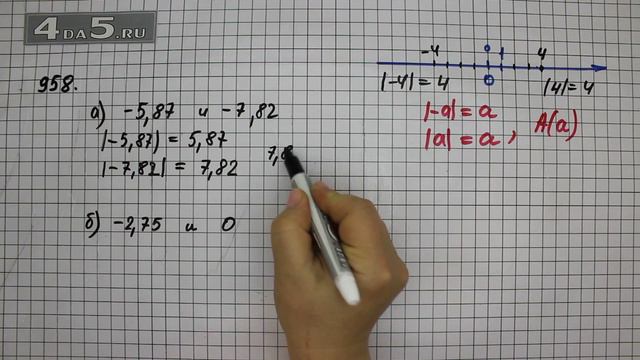 4 DA 5.RU
958.
а) -5,87 и -7,82
|-5,87| = 5,87
|-7,82| = 7,82
7,8
б) -2,75 и 0
-4 0 1 4
0
|-4| = 4 |4| = 4
|-a| = a
|a| = a, A(a)